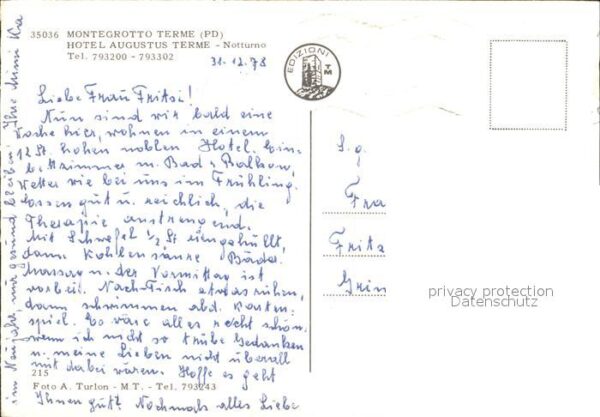 35036 MONTEGROTTO TERME (PD)
HOTEL AUGUSTUS TERME - Notturno
Tel. 793200 - 793302
EDIZIONI
TM
31.12.78
Liebe Frau Fritzi!
Nun sind wir bald eine
Woche hier, wohnen in einem
12 St. hohen noblen Hotel. Ein-
b. Zimmer m. Bad u Balkon,
Wetter wie bei uns im Frühling.
Essen gut u. reichlich, die
Therapie anstrengend.
Mit Schwefel 1/2 St eingehüllt,
dann Kohlensäure Bäder
Massage u. der Vormittag ist
vorbei. Nach Tisch etwas ruhen,
dann schwimmen abd. Karten-
spiel. Es wäre alles recht schön,
wenn ich nicht so trübe Gedanken
u. meine Lieben nicht überall
mit dabei wären. Hoffe es geht
Ihnen gut? Nochmals alles Liebe
im Neujahr, nur gesund bleiben Ihre Mimi
S. g.
Fra
Fritz
Grin
privacy protection
Datenschutz
215
Foto A. Turlon - M T. - Tel. 793243